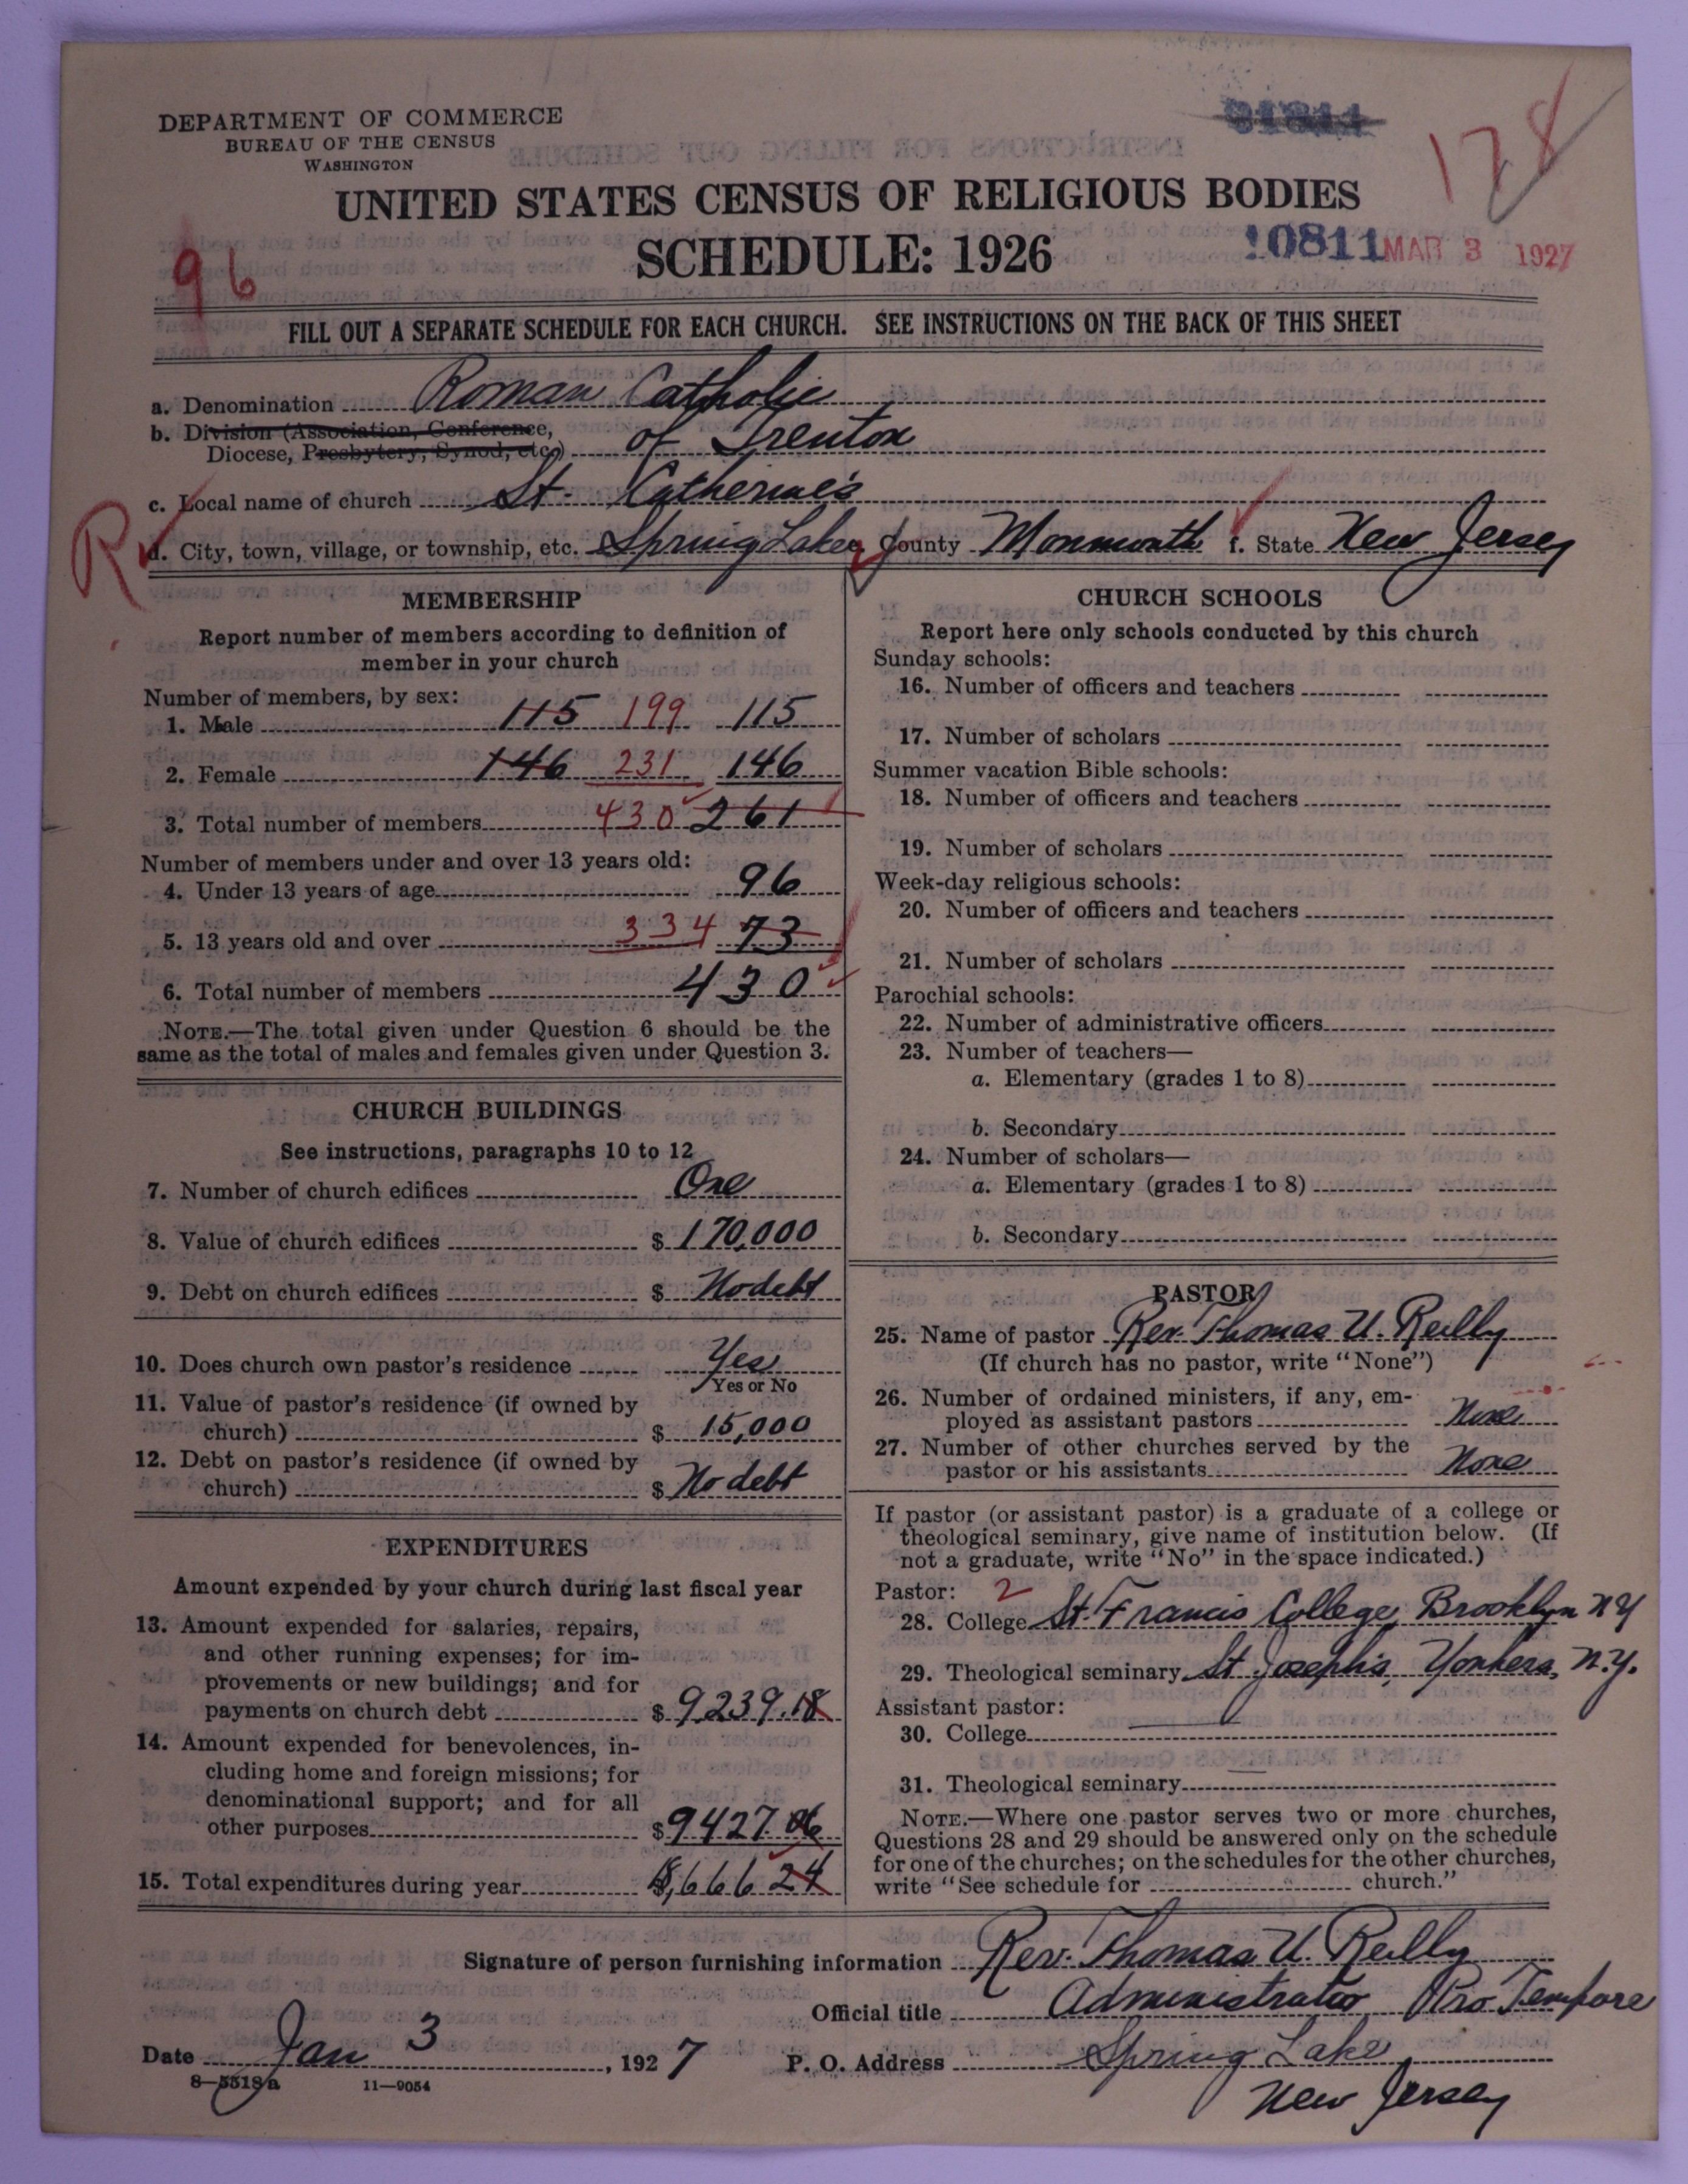 DEPARTMENT OF COMMERCE
BUREAU OF THE CENSUS
WASHINGTON
178
UNITED STATES CENSUS OF RELIGIOUS BODIES
SCHEDULE: 1926
10811 MAR 3 1927
96
FILL OUT A SEPARATE SCHEDULE FOR EACH CHURCH. SEE INSTRUCTIONS ON THE BACK OF THIS SHEET
a. Denomination Roman Catholic
b. Division (Association, Conference,
Diocese, Presbytery, Synod, etc.) of Trenton
c. Local name of church St. Catherine's
R d. City, town, village, or township, etc. Spring Lake County Monmouth f. State New Jersey
MEMBERSHIP
Report number of members according to definition of
member in your church
Number of members, by sex:
1. Male 115 199 115
2. Female 146 231 146
3. Total number of members 430 261
Number of members under and over 13 years old:
4. Under 13 years of age 96
5. 13 years old and over 334 73
6. Total number of members 430
NOTE.—The total given under Question 6 should be the
same as the total of males and females given under Question 3.
CHURCH BUILDINGS
See instructions, paragraphs 10 to 12
7. Number of church edifices One
8. Value of church edifices $ 170,000
9. Debt on church edifices $ No debt
10. Does church own pastor's residence Yes
Yes or No
11. Value of pastor's residence (if owned by
church) $ 15,000
12. Debt on pastor's residence (if owned by
church) $ No debt
EXPENDITURES
Amount expended by your church during last fiscal year
13. Amount expended for salaries, repairs,
and other running expenses; for im-
provements or new buildings; and for
payments on church debt $ 9,239.18
14. Amount expended for benevolences, in-
cluding home and foreign missions; for
denominational support; and for all
other purposes $ 9427 06
15. Total expenditures during year 18,666 24
CHURCH SCHOOLS
Report here only schools conducted by this church
Sunday schools:
16. Number of officers and teachers
17. Number of scholars
Summer vacation Bible schools:
18. Number of officers and teachers
19. Number of scholars
Week-day religious schools:
20. Number of officers and teachers
21. Number of scholars
Parochial schools:
22. Number of administrative officers
23. Number of teachers—
a. Elementary (grades 1 to 8)
b. Secondary
24. Number of scholars—
a. Elementary (grades 1 to 8)
b. Secondary
PASTOR
25. Name of pastor Rev. Thomas U. Reilly
(If church has no pastor, write "None")
26. Number of ordained ministers, if any, em-
ployed as assistant pastors None
27. Number of other churches served by the
pastor or his assistants None
If pastor (or assistant pastor) is a graduate of a college or
theological seminary, give name of institution below. (If
not a graduate, write "No" in the space indicated.)
Pastor: 2
28. College St. Francis College, Brooklyn NY
29. Theological seminary St Joseph's, Yonkers, N.Y.
Assistant pastor:
30. College
31. Theological seminary
NOTE.—Where one pastor serves two or more churches,
Questions 28 and 29 should be answered only on the schedule
for one of the churches; on the schedules for the other churches,
write "See schedule for church."
Signature of person furnishing information Rev. Thomas U. Reilly
Official title Administrator Pro Tempore
Date Jan 3, 1927 P. O. Address Spring Lake
New Jersey
8—5518a 11—9054